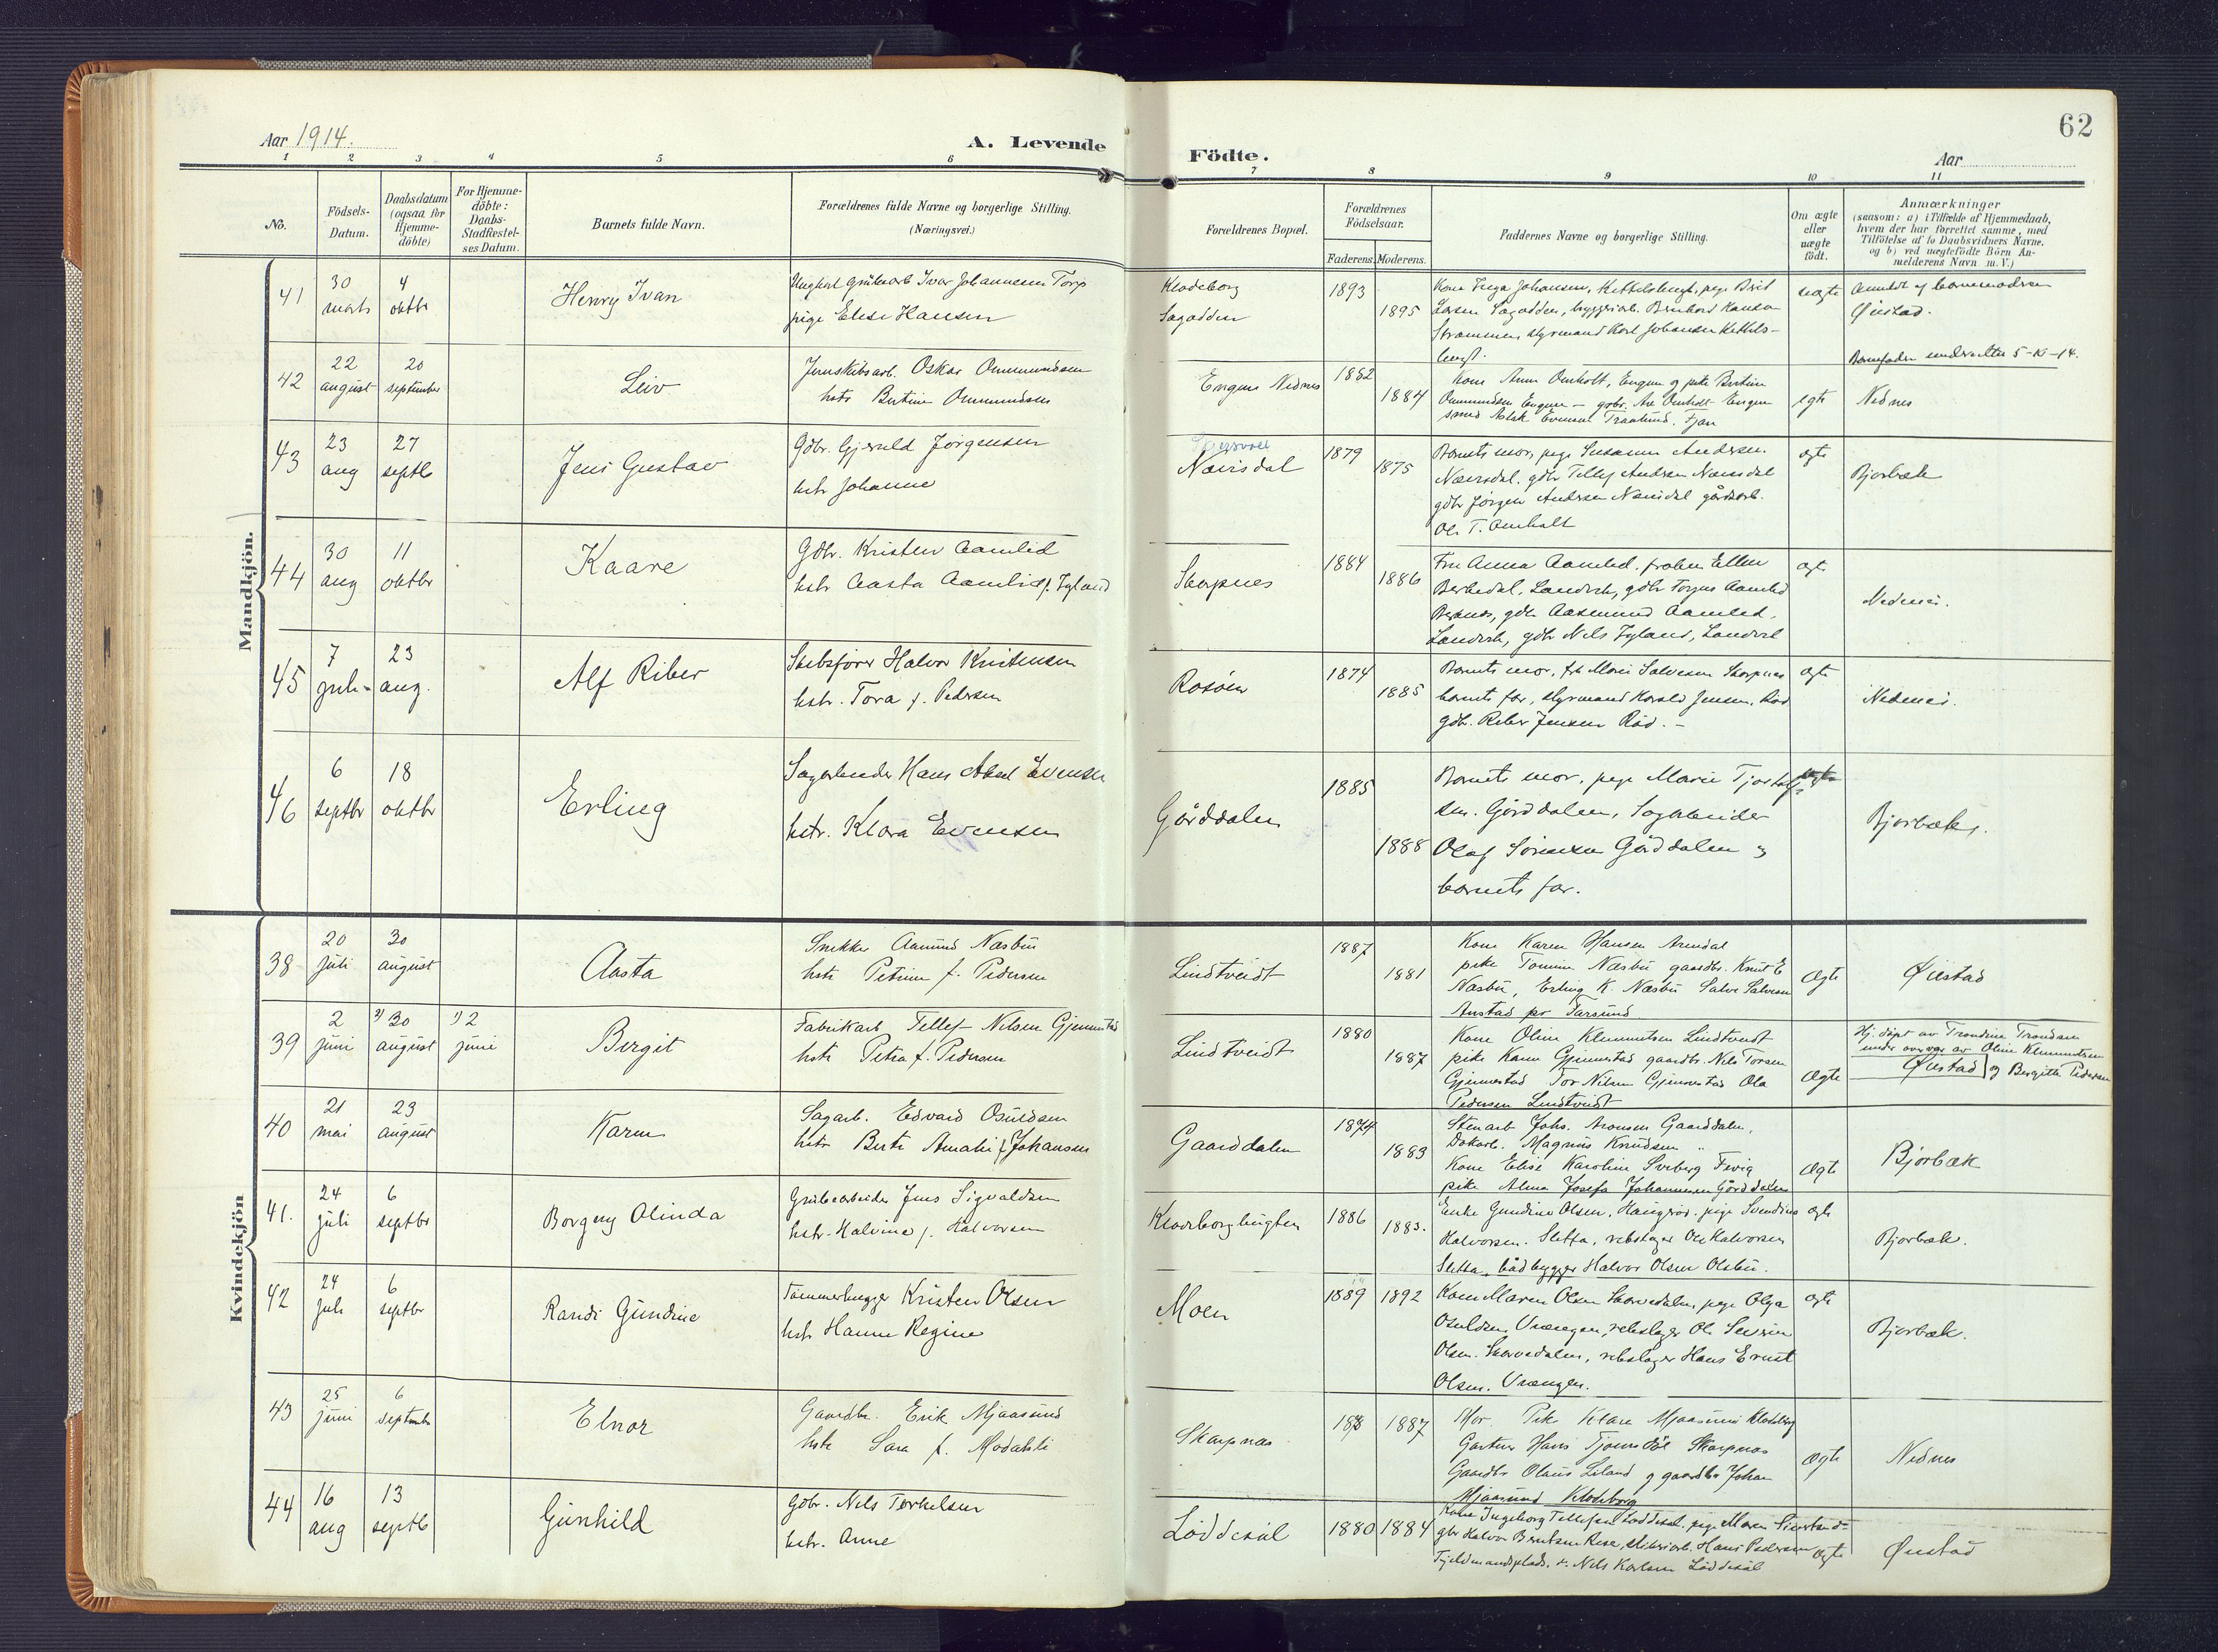 62
Aar 1914.
A. Levende Födte.
Aar
1 2 3 4 5 6 7 8 9 10 11
No.
Födsels-Datum.
Daabsdatum (ogsaa for Hjemme-döbte)
For Hjemme-döbte: Daabs-Stadfæstel-ses Datum.
Barnets fulde Navn.
Forældrenes fulde Navne og borgerlige Stilling.
(Næringsvei.)
Forældrenes Bopæl.
Forældrenes Födselsaar.
Faderens. Moderens.
Faddernes Navne og borgerlige Stilling.
Om ægte eller uægte födt.
Anmærkninger
(saasom: a) i Tilfælde af Hjemmedaab,
hvem der har forrettet samme, med
Tilföielse af to Daabsvidners Navne,
og b) ved uægtefödte Börn An-
melderens Navn m. V.)
Mandkjön.
41
30 marts
4 oktbr
Henry Ivan
Ungkarl Grubearb Ivar Johannesen Torp
pige Elise Hansen
Klodeborg
Sagodden
1893
1895
Kone Inga Johansen, pige Berit
Larsen Sagodden,
Strømmen, styrmand Karl Johansen
uægte
Anmeldt af barnemoderen
Øiestad.
Barnefader underrettes 5-10-14.
42
22 august
20 september
Leiv
Jernskibsarb. Oskar Ommundsen
hstr Bertine Ommundsen
Engene Nednes
1882
1884
Kone Anna Omholt, Engene og pike Bertine
Ommundsen Engene - gbr. Omholt Engene
smed Evensen
egte
Nednes
43
23 aug
27 septb
Jens Gustav
Gbr. Gjeruld Jørgensen
hstr Johanne
Nævisdal
1879
1875
Barnets mor, pige Susanne Andersen.
Nævisdal. gbr Tellef Andersen Nævisdal
gbr Jørgen Andersen Nævisdal gårdarb.
Ole T. Omholt
ægte
Bjorbæk
44
30 aug
11 oktbr
Kaare
Gbr. Kristen Aamlid
hstr Aasta Aamlid f. Tyland
Skarpnes
1884
1886
Fru Anna Aamlid, frøken Ellen
Landvik, gbr Torjus Aamlid
gbr Aasmund Aamlid,
Landvik, gbr Nils Tyland, Landvik
ægte
Nednes.
45
7 juli
23 aug.
Alf Riber
Skibsfører Halvor Kristensen
hstr. Tora f. Pedersen
Rosøen
1874
1885
Barnets mor, frk Marie Salvesen Skarpnes
barnets far, styrmand Harald Jensen, Rød
gbr. Riber Jensen Rød.
ægte
Nednes.
46
6 septbr
18 oktbr
Erling
Sagarbeider Hans Aksel Evensen
hstr. Klara Evensen
Gårddalen
1885
1888
Barnets mor, pige Marie
Gårddalen, Sagarbeider
Olaf Sørensen Gårddalen og
barnets far.
ægte
Bjorbæk.
Kvindekjön
38
20 juli
30 august
Aasta
Snekker Aamund Næsbü
hstr Petrine f. Pedersen
Lindtveidt
1887
1881
Kone Karen Hansen Arendal
pike Tomine Næsbü gaardbr. Knut E
Næsbü, Erling K. Næsbü Salve Salvesen
Anstad pr Farsund.
Ægte
Øiestad
39
2 juni
2) 30 august
1) 2 juni
Birgit
Fabrikarb Tellef Nilsen Gjennestad
hstr Petra f. Pedersen
Lindtveidt
1880
1887
Kone Oline Klemmetsen Lindtveidt
pike Karen Gjennestad gaardbr. Nils Torsen
Gjennestad Tor Nilsen Gjennestad Ola
Pedersen Lindtveidt
Ægte
Hj. døpt av Trondine Trondsen
under overvær av Oline Klemmetsen
Øiestad og Birgitte Pedersen
40
21 mai
23 august
Karen
Sagarb. Edvard Osuldsen
hstr Berte Amalie f Johansen
Gaarddalen
1874
1883
Stenarb Johs. Aronsen Gaarddalen,
Dokarb. Magnus Knudsen "
Kone Elise Karoline Sveberg Fevig
pike Alma Josefa Johannesen Gårddalen
Ægte
Bjorbæk
41.
24 juli
6 septbr
Borgny Olinda
Grubearbeider Jens Sigvaldsen
hstr. Halvine f. Halvorsen
Klodeborgbugten
1886
1883.
Enke Gundine Olsen, Haugerød. pige Svendine
Halvorsen. Sletta, rebslager Ole Halvorsen
Sletta, bådbygger Halvor Olsen Olsbü.
ægte
Bjorbæk.
42
24 juli
6 septbr
Randi Gundine
Tømmerhugger Kristen Olsen
hstr Hanne Regine
Moen
1889
1892
Kone Maren Olsen, pige Olga
Osuldsen, Vrængen, rebslager Ole Severin
Olsen., rebslager Hans Ernst
Olsen. Vrængen.
ægte
Bjorbæk.
43
25 juni
6 september
Elnor
Gaardbr. Erik Mjaasund
hstr Sara f.
Skarpnæs
188
1887
Mor. Pike Klara Mjaasund Klodeborg
Gartner Hans Skarpnæs
Gaardbr Olaus Liland og gaardbr Johan
Mjaasund Klodeborg
Ægte
Nednes
44
16 aug
13 septb
Gunhild
Gbr. Nils Terkelsen
hstr. Anne
Løddesøl
1880
1884
Kone Ingeborg Tellefsen Løddesøl. pige Maren
gbr Halvor Berntsen Rise, Hans Pedersen
Nils Karlsen Løddesøl
ægte
Øiestad